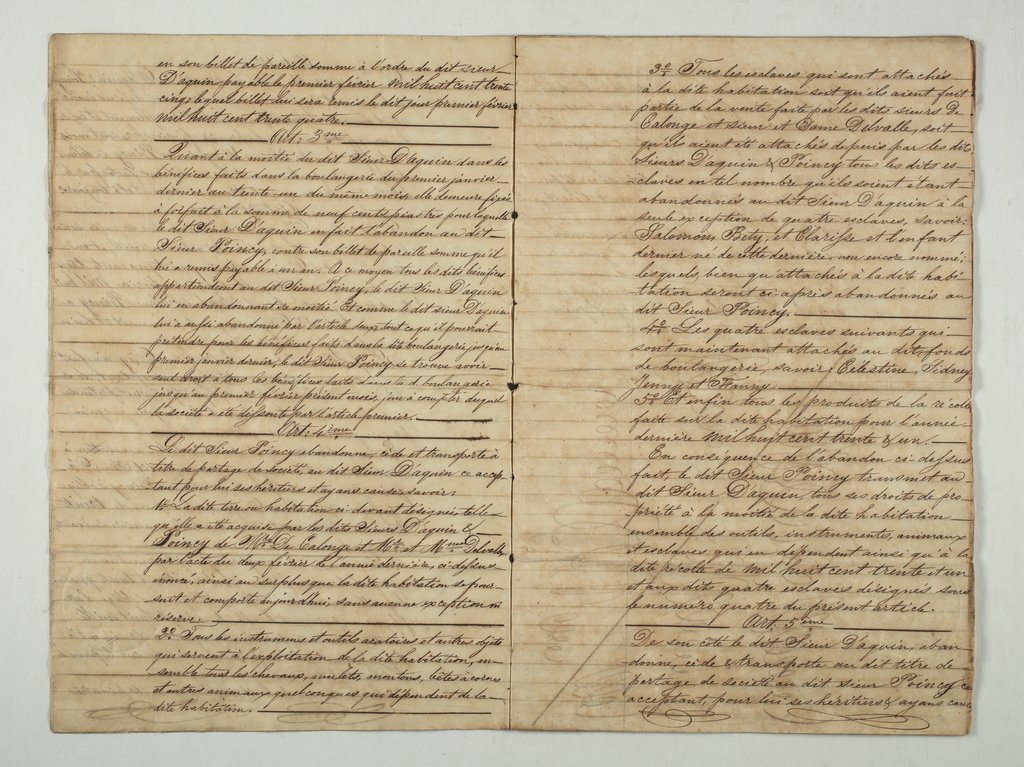 en son billet de pareille somme à l'ordre du dit sieur
D'aquin payable le premier février mil huit cent trente
cinq, lequel billet lui sera remis le dit jour premier février
mil huit cent trente quatre.
Art: 3me
Quant à la moitié du dit Sieur D'aquin dans les
bénéfices faits dans la boulangerie du premier janvier
dernier au trente-un du même mois, elle demeure fixée
à forfait à la somme de neuf cents piastres pour laquelle
le dit Sieur D'aquin en fait l'abandon au dit
Sieur Poincy, contre son billet de pareille somme qu'il
lui a remis payable à un an. Et ce moyen tous les dits bénéfices
appartiendront au dit Sieur Poincy, le dit Sieur D'aquin
lui en abandonnant sa moitié. Et comme le dit sieur D'aquin
lui a aussi abandonné par l'article deux tout ce qu'il pourrait
prétendre pour les bénéfices faits dans la dite boulangerie jusqu'au
premier janvier dernier, le dit Sieur Poincy se trouve avoir
seul droit à tous les bénéfices faits dans la d. boulangerie
jusqu'au premier février présent mois, jour à compter duquel
la société a été dissoute par l'article premier.
Art: 4ème
Le dit Sieur Poincy abandonne, cède et transporte à
titre de partage de Société, au dit Sieur D'aquin ce accep
tant pour lui ses héritiers et ayans cause, savoir:
1o La dite terre ou habitation ci-devant désignée, telle
qu'elle a été acquise par les dits Sieurs D'aquin &
Poincy de Mr De Calonge et Mr et Mme Delvalle
par l'acte du deux février de l'année dernière, ci-dessus
énoncé, ainsi au surplus que la dite habitation se pour
suit et comporte aujourd'hui, sans aucune exception ni
réserve.
2o Tous les instrumens et outils aratoires et autres objets
qui servent à l'exploitation de la dite habitation, en-
semble tous les chevaux, mulets, moutons, bêtes à cornes
et autres animaux quelconques qui dépendent de la
dite habitation.
3o Tous les esclaves qui sont attachés
à la dite habitation soit qu'ils aient fait
partie de la vente faite par les dits sieurs De
Calonge et sieur et Dame Delvalle, soit
qu'ils aient été attachés depuis par les dits
Sieurs D'aquin & Poincy tous les dits es-
claves en tel nombre qu'ils soient étant
abandonnés au dit Sieur D'aquin à la
seule exception de quatre esclaves, savoir:
Salomon, Betzy, et Clarisse et l'enfant
dernier né de cette dernière, non encore nommé;
lesquels, bien qu'attachés à la dite habi
tation seront ci-après abandonnés au
dit Sieur Poincy.
4o Les quatre esclaves suivants qui
sont maintenant attachés au dit fonds
de boulangerie, savoir; Célestine, Sidney
Jenny et Nanny.
5o Et enfin tous les produits de la récolte
faite sur la dite habitation pour l'année
dernière mil huit cent trente & un.
En conséquence de l'abandon ci-dessus
fait, le dit Sieur Poincy transmet au
dit Sieur D'aquin, tous ses droits de pro
priété à la moitié de la dite habitation
ensemble des outils, instruments, animaux
et esclaves qui en dépendent ainsi qu'à la
dite récolte de mil huit cent trente et un
et aux dits quatre esclaves désignés sous
le numéro quatre du présent article.
Art. 5ème
De son côté le dit Sieur D'aquin, aban-
donne, cède & transporte au dit titre de
partage de société au dit sieur Poincy ce
acceptant, pour lui ses héritiers & ayans cause